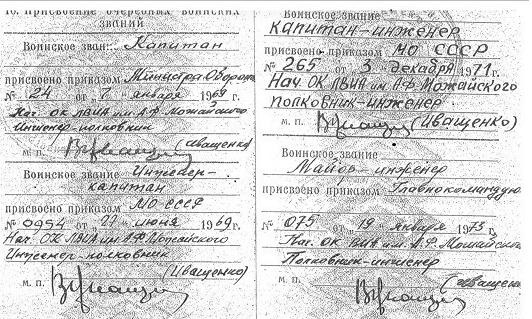 16. Присвоение очередных воинских
званий
Воинское зван: Капитан
присвоено приказом Министра Оборон
№ 24 от 7 января 1969 г.
Нач. ОК ЛВИА им. А.Ф. Можайского
Инженер-полковник
м. п. (Иващенко)
Воинское звание Инженер-
капитан
присвоено приказом МО СССР
№ 0954 от 21 июня 1969 г.
Нач. ОК ЛВИА им. А.Ф. Можайского
Инженер-полковник
м. п. (Иващенко)
Воинское звание
капитан-инженер
присвоено приказом МО СССР
№ 265 от 3 декабря 1971 г.
Нач. ОК ЛВИА им. А.Ф. Можайского
полковник-инженер
м. п. (Иващенко)
Воинское звание
Майор-инженер
присвоено приказом Главнокоманду
№ 075 от 19 января 1973 г.
Нач. ОК ВИА им. А.Ф. Можайск
Полковник-инженер
м. п. (Иващенко)